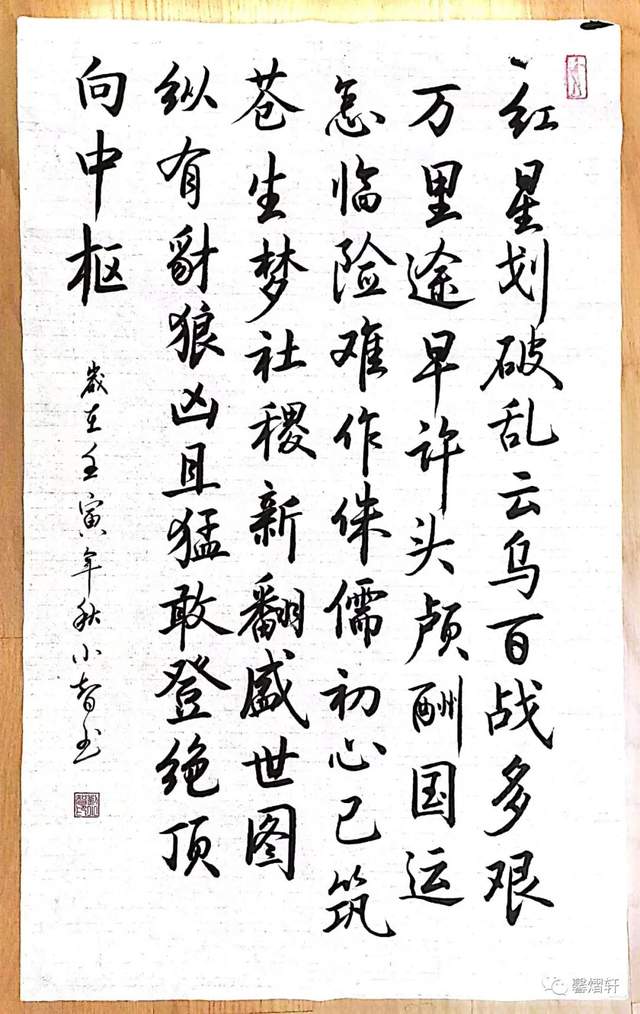 红星划破乱云乌百战多艰
万里途早许头颅酬国运
怎临险难作侏儒初心已筑
苍生梦社稷新翻盛世图
纵有豺狼凶且猛敢登绝顶
向中枢
岁在壬寅年秋小智书
馨熠轩